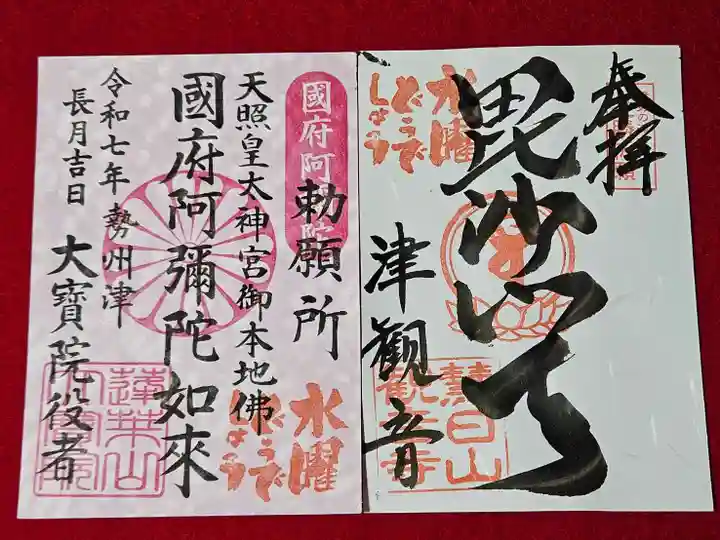 奉拝
毘沙门天
水曜
どうで
しょう
津観音
慧日山
観音寺
國府阿
勅願所
天照皇大神宮御本地佛
國府阿彌陀如來
水曜
どうで
しょう
令和七年
勢州津
長月吉日
大寶院役者
蓮華山